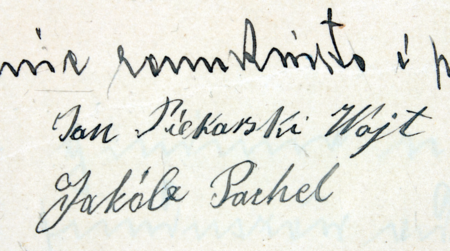 nie zamknięto i p
Jan Piekarski Wójt
Jakób Pachel